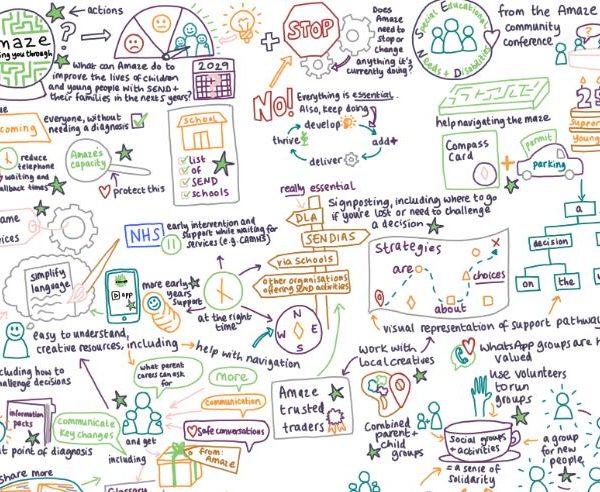 maze
ing you through
?
actions
What can Amaze do to
improve the lives of children
and young people with SEND +
their families in the next 5 years?
2029
+
STOP
Does
Amaze
need to
stop or
change
anything it's
currently doing?
Special Educational
Needs + Disabilities
from the Amaze
community
conference
?
NO!
Everything is essential.
Also, keep doing
develop
thrive
add+
deliver
help navigating the maze
Compass
Card
+
permit
parking
25
Support
Young
coming
everyone, without
needing a diagnosis
reduce
telephone
waiting and
callback times
Amaze's
capacity
protect this
SCHOOL
list
of
SEND
schools
really essential
DLA
SENDIAS
via Schools
other organisations
offering SEND activities
Signposting, including where to go
if you're lost or need to challenge
a decision
a
decision
on
the
NHS
early intervention and
support while waiting for
services (e.g. CAMHS)
simplify
language
app
more early
years
support
at the right
time
N
W
E
S
Strategies
are
choices
about
x
visual representation of support pathway
easy to understand,
creative resources, including
help with navigation
including how to
challenge decisions
what parent
carers can ask
for
more
communication
safe conversations
information
packs
communicate
key changes
and get
including
from:
Amaze
at point of diagnosis
share more
Glossary
Amaze
trusted
traders
work with
local creatives
Combined
parent+
child
groups
WhatsApp groups are h
valued
use volunteers
to run
groups
Social groups
+ activities
= a sense of
solidarity
a group
for new
people